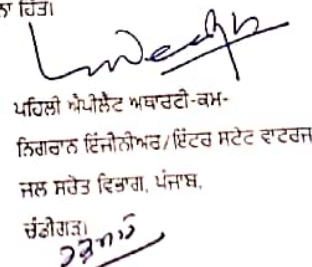 ਨਾ ਹਿੱਤ।
ਪਹਿਲੀ ਐਪੀਲੈਟ ਅਥਾਰਟੀ-ਕਮ-
ਨਿਗਰਾਨ ਇੰਜੀਨੀਅਰ/ਇੰਟਰ ਸਟੇਟ ਵਾਟਰਜ
ਜਲ ਸਰੋਤ ਵਿਭਾਗ, ਪੰਜਾਬ,
ਚੰਡੀਗੜ।